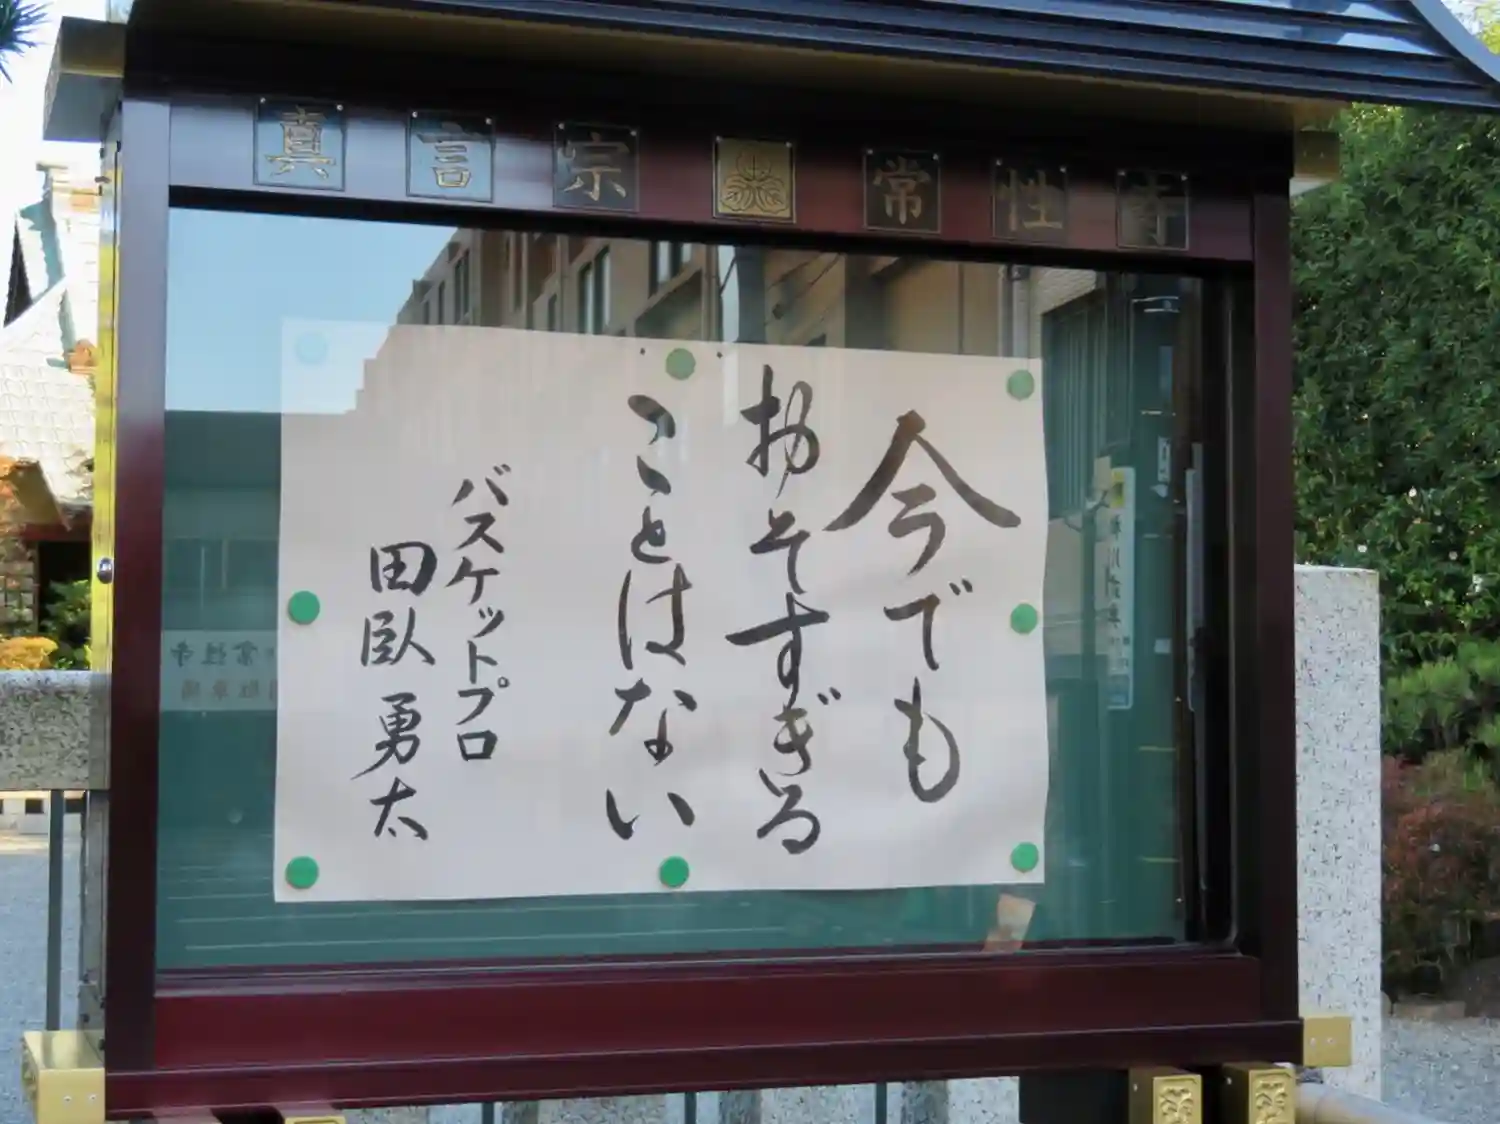 真言宗 常性寺
今でも
おそすぎる
ことはない
バスケットプロ
田臥勇太
常性寺